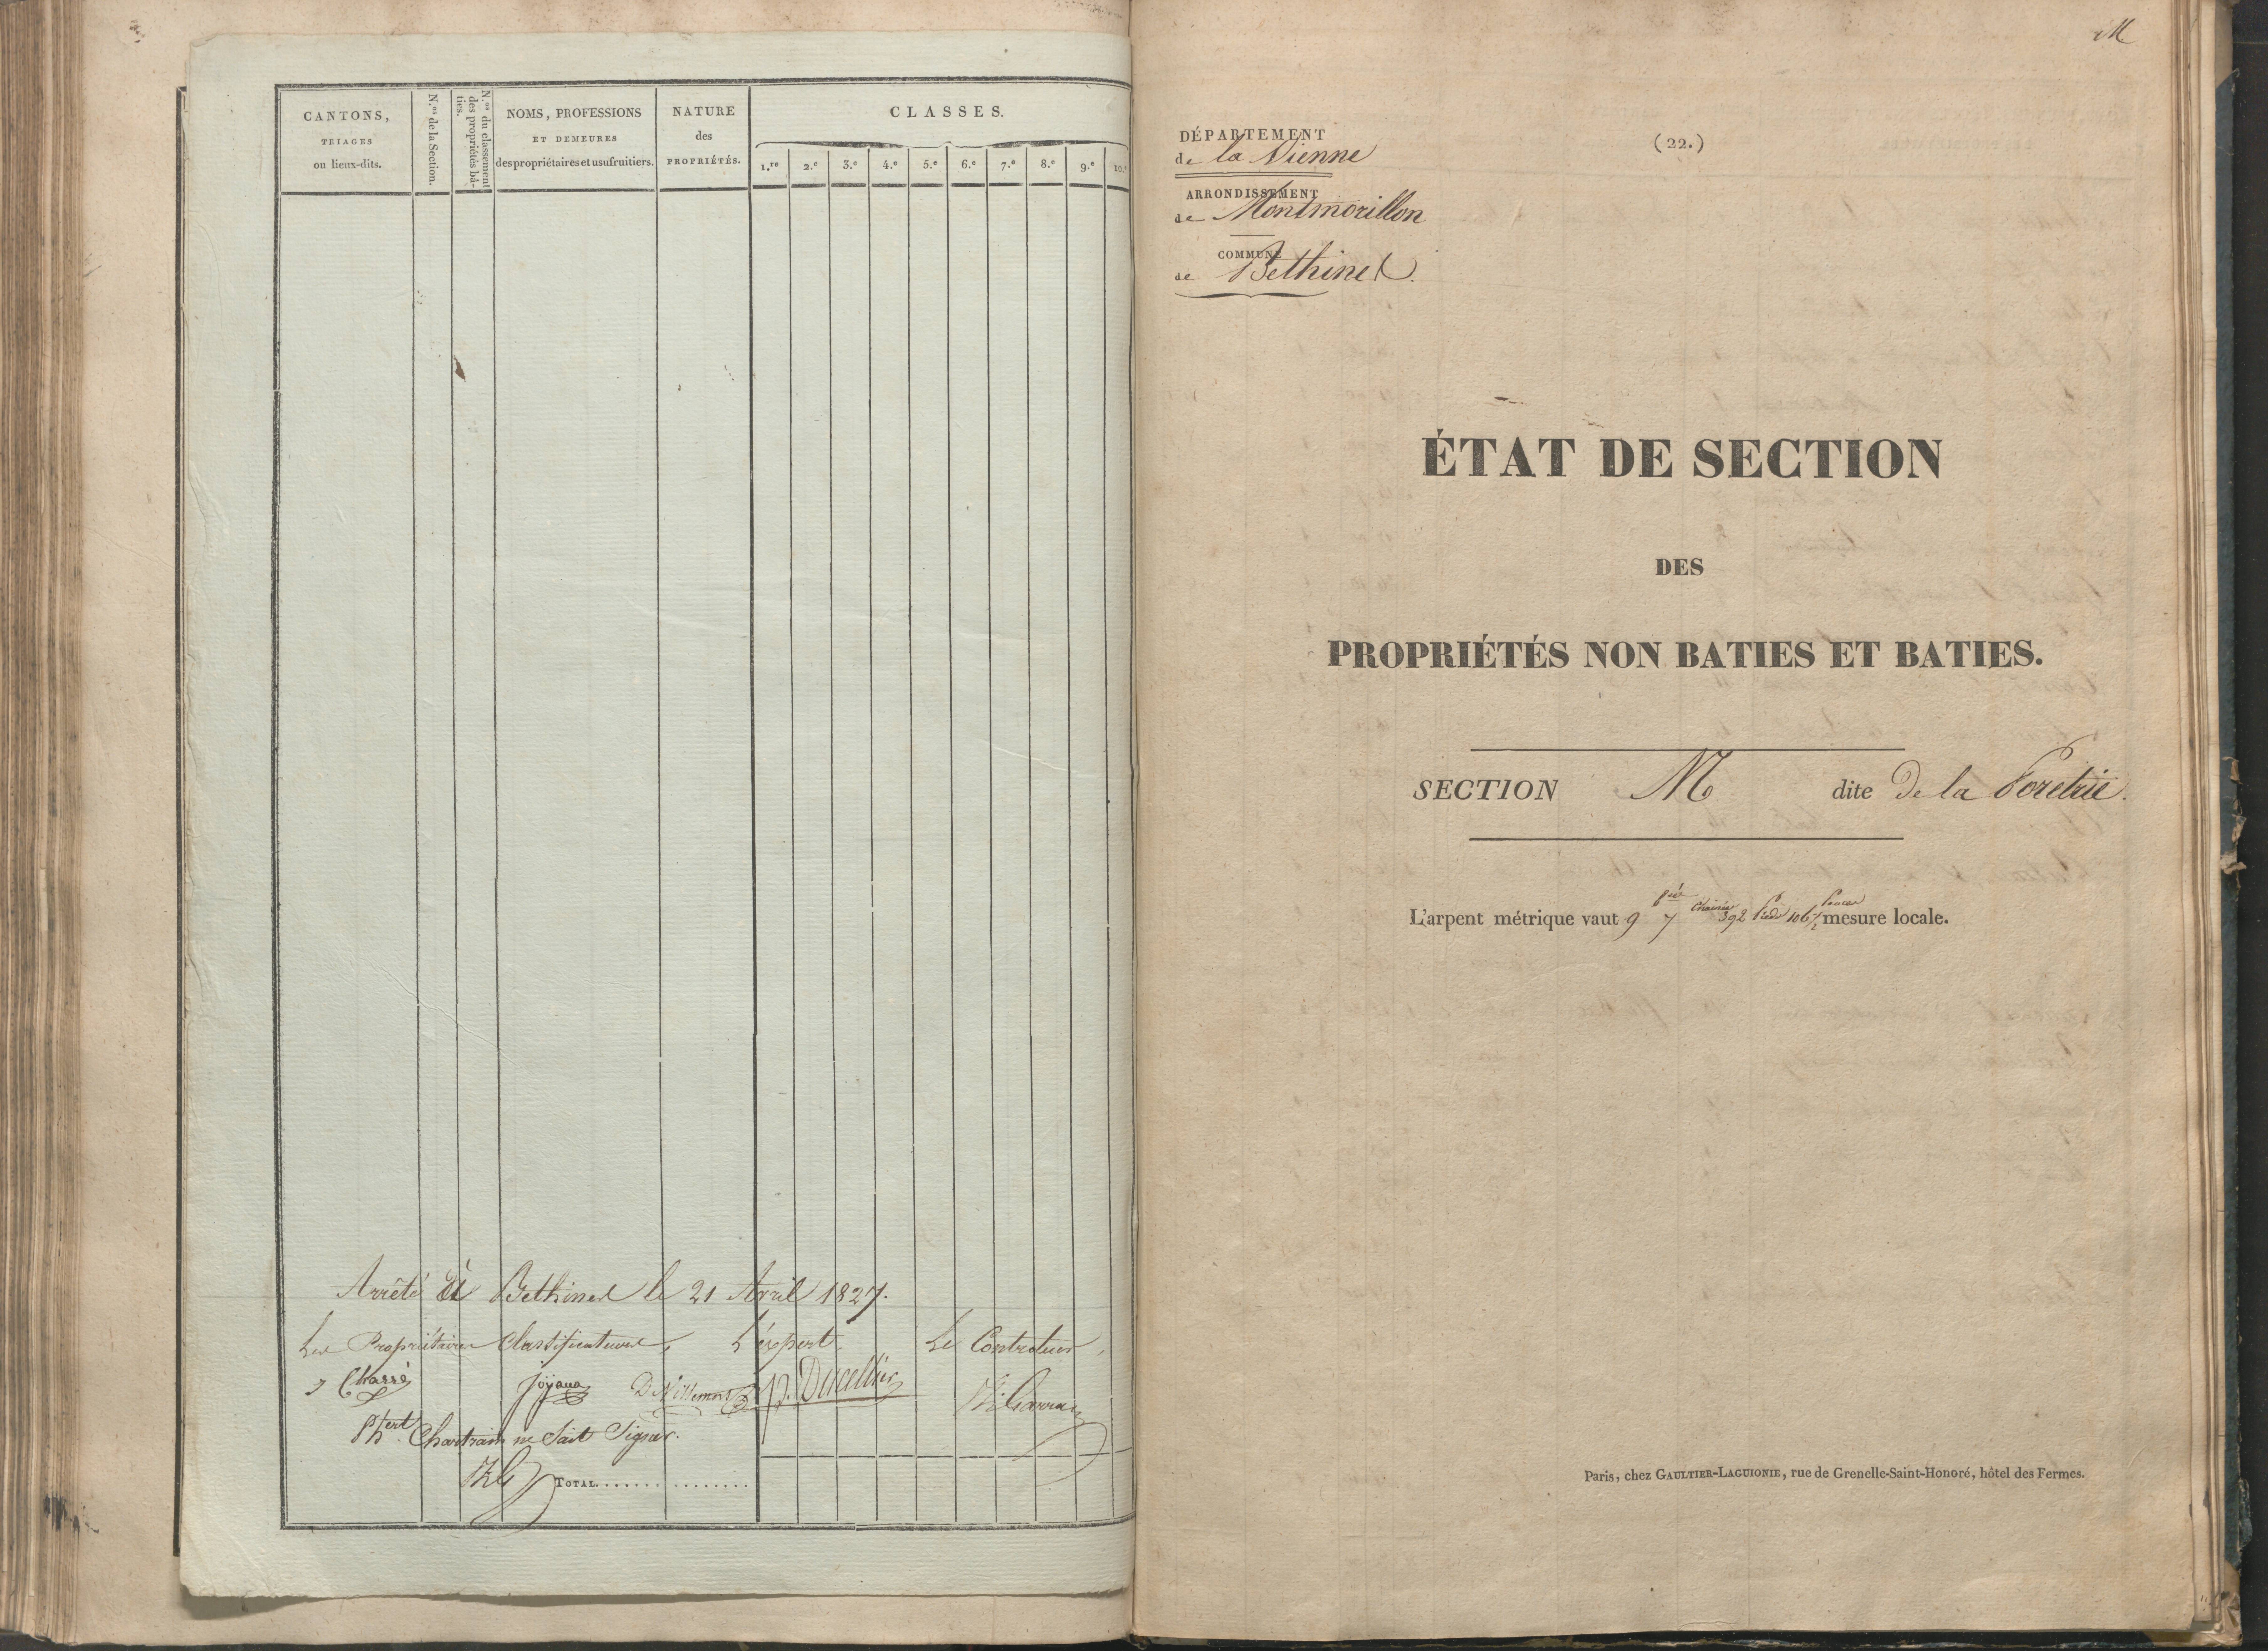 CANTONS,
TRIAGES
ou lieux-dits.
N.os de la Section.
N.os du classement
des propriétés bâ-
ties.
NOMS, PROFESSIONS
ET DEMEURES
des propriétaires et usufruitiers.
NATURE
des
PROPRIÉTÉS.
CLASSES.
1.re 2.e 3.e 4.e 5.e 6.e 7.e 8.e 9.e 10.e
Arrêté à Bethines le 21 Avril 1827.
Les Propriétaires Classificateurs, L'expert, Le Controleur,
Chassé Joyaux P. Ducellier
Chartrain ne Sait Signer.
TOTAL
M
(22.)
DÉPARTEMENT
de la Vienne
ARRONDISSEMENT
de Montmorillon
COMMUNE
de Bethines.
ÉTAT DE SECTION
DES
PROPRIÉTÉS NON BATIES ET BATIES.
SECTION M dite De la Foretrie.
L'arpent métrique vaut 9 7 Chainées 392 Pieds 106 1/2 Pouces mesure locale.
Paris, chez GAULTIER-LAGUIONIE, rue de Grenelle-Saint-Honoré, hôtel des Fermes.